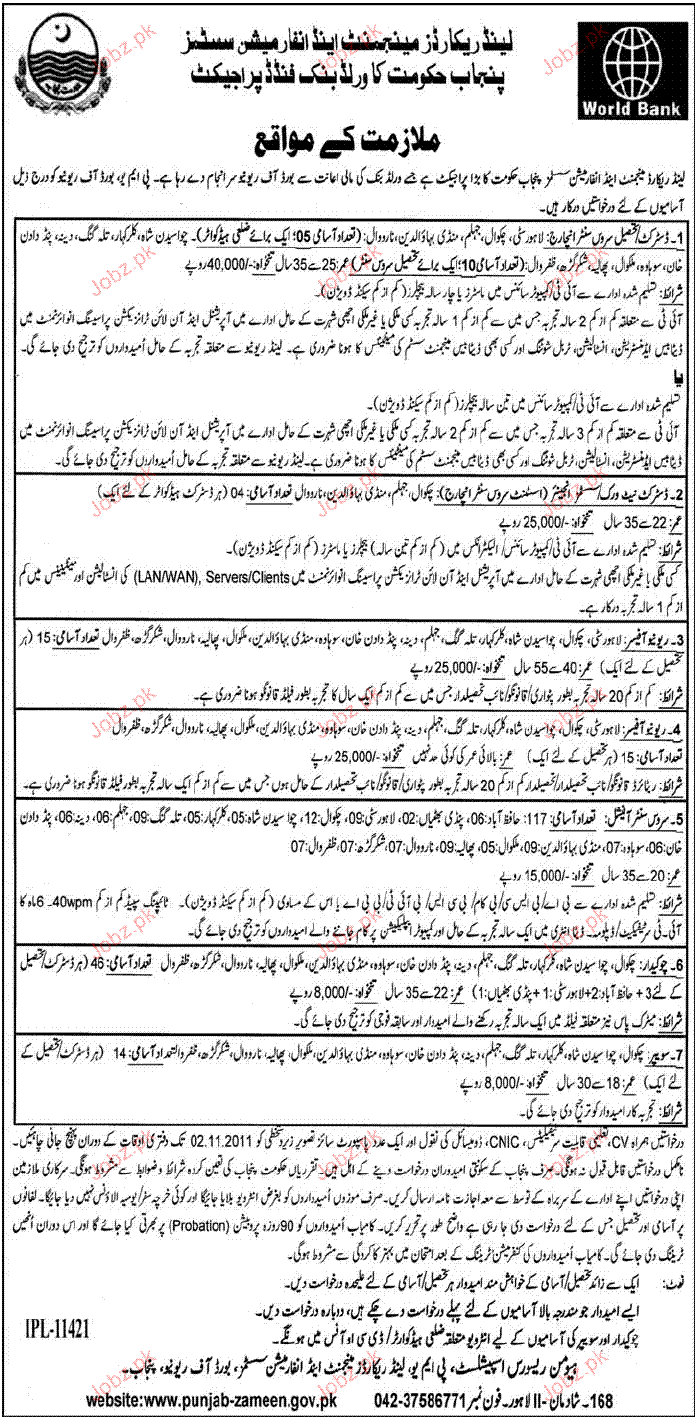 لینڈ ریکارڈز مینجمنٹ اینڈ انفارمیشن سسٹمز
پنجاب حکومت کا ورلڈ بنک فنڈڈ پراجیکٹ
World Bank
ملازمت کے مواقع
لینڈ ریکارڈ مینجمنٹ اینڈ انفارمیشن سسٹمز پنجاب حکومت کا بڑا پراجیکٹ ہے جسے ورلڈ بنک کی مالی اعانت سے بورڈ آف ریونیو سرانجام دے رہا ہے۔ پی ایم یو، بورڈ آف ریونیو کو درج ذیل
آسامیوں کے لئے درخواستیں درکار ہیں۔
1۔ ڈسٹرکٹ/تحصیل سروس سنٹر انچارج: لاہور سٹی، چکوال، جہلم، منڈی بہاؤالدین، نارووال: (تعداد آسامی 05؛ ایک برائے ضلعی ہیڈکواٹر)۔ چواسیدن شاہ، کلرکہار، تلہ گنگ، دینہ، پنڈ دادن
خان، سوہاوہ، ملکوال، پھالیہ، شکرگڑھ، ظفروال: (تعداد آسامی 10؛ ایک برائے تحصیل سروس سنٹر) عمر: 25 سے 35 سال تنخواہ: -/40,000 روپے
شرائط: تسلیم شدہ ادارے سے آئی ٹی/کمپیوٹر سائنس میں ماسٹرز یا چار سالہ بیچلرز (کم از کم سیکنڈ ڈویژن)۔
آئی ٹی سے متعلقہ کم از کم 2 سالہ تجربہ جس میں سے کم از کم 1 سالہ تجربہ کسی ملکی یا غیر ملکی اچھی شہرت کے حامل ادارے میں آپریشنل اینڈ آن لائن ٹرانزیکشن پراسیسنگ انوائرنمنٹ میں
ڈیٹابیس ایڈمنسٹریشن، انسٹالیشن، ٹربل شوٹنگ اور کسی بھی ڈیٹابیس مینجمنٹ سسٹم کی مینٹیننس کا ہونا ضروری ہے۔ لینڈ ریونیو سے متعلقہ تجربہ کے حامل امیدواروں کو ترجیح دی جائے گی۔
یا
تسلیم شدہ ادارے سے آئی ٹی/کمپیوٹر سائنس میں تین سالہ بیچلرز (کم از کم سیکنڈ ڈویژن)۔
آئی ٹی سے متعلقہ کم از کم 3 سالہ تجربہ جس میں سے کم از کم 2 سالہ تجربہ کسی ملکی یا غیر ملکی اچھی شہرت کے حامل ادارے میں آپریشنل اینڈ آن لائن ٹرانزیکشن پراسیسنگ انوائرنمنٹ میں
ڈیٹابیس ایڈمنسٹریشن، انسٹالیشن، ٹربل شوٹنگ اور کسی بھی ڈیٹابیس مینجمنٹ سسٹم کی مینٹیننس کا ہونا ضروری ہے۔ لینڈ ریونیو سے متعلقہ تجربہ کے حامل امیدواروں کو ترجیح دی جائے گی۔
2۔ ڈسٹرکٹ نیٹ ورک/سسٹمز انجینئر (اسسٹنٹ سروس سنٹر انچارج): چکوال، جہلم، منڈی بہاؤالدین، نارووال تعداد آسامی: 04 (ہر ڈسٹرکٹ ہیڈکواٹر کے لئے ایک)
عمر: 22 سے 35 سال تنخواہ: -/25,000 روپے
شرائط: تسلیم شدہ ادارے سے آئی ٹی/کمپیوٹر سائنس/الیکٹرانکس میں (کم از کم تین سالہ) بیچلرز یا ماسٹرز (کم از کم سیکنڈ ڈویژن)
کسی ملکی یا غیر ملکی اچھی شہرت کے حامل ادارے میں آپریشنل اینڈ آن لائن ٹرانزیکشن پراسیسنگ انوائرنمنٹ میں (LAN/WAN), Servers/Clients کی انسٹالیشن اور مینٹیننس میں کم
از کم 1 سالہ تجربہ درکار ہے۔
3۔ ریونیو آفیسر: لاہور سٹی، چکوال، چواسیدن شاہ، کلرکہار، تلہ گنگ، جہلم، دینہ، پنڈ دادن خان، سوہاوہ، منڈی بہاؤالدین، ملکوال، پھالیہ، نارووال، شکرگڑھ، ظفروال تعداد آسامی: 15 (ہر
تحصیل کے لئے ایک) عمر: 40 سے 55 سال تنخواہ: -/25,000 روپے
شرائط: کم از کم 20 سالہ تجربہ بطور پٹواری/قانونگو/نائب تحصیلدار جس میں سے کم از کم ایک سال کا تجربہ بطور فیلڈ قانونگو ہونا ضروری ہے۔
4۔ ریونیو آفیسر: لاہور سٹی، چکوال، چواسیدن شاہ، کلرکہار، تلہ گنگ، جہلم، دینہ، پنڈ دادن خان، سوہاوہ، منڈی بہاؤالدین، ملکوال، پھالیہ، نارووال، شکرگڑھ، ظفروال
تعداد آسامی: 15 (ہر تحصیل کے لئے ایک) عمر: بالائی عمر کی کوئی حد نہیں تنخواہ: -/25,000 روپے
شرائط: ریٹائرڈ قانونگو/نائب تحصیلدار/تحصیلدار کم از کم 20 سالہ تجربہ بطور پٹواری/قانونگو/نائب تحصیلدار کے حامل ہوں جس میں سے کم از کم ایک سالہ تجربہ بطور فیلڈ قانونگو ہو۔
5۔ سروس سنٹر آفیشل: تعداد آسامی: 117: حافظ آباد: 06، پنڈی بھٹیاں: 02، لاہور سٹی: 09، چکوال: 12، چواسیدن شاہ: 05، کلرکہار: 05، تلہ گنگ: 09، جہلم: 06، دینہ: 06، پنڈ دادن
خان: 06، سوہاوہ: 07، منڈی بہاؤالدین: 09، ملکوال: 05، پھالیہ: 09، نارووال: 07، شکرگڑھ: 07، ظفروال: 07
عمر: 20 سے 35 سال تنخواہ: -/15,000 روپے
شرائط: تسلیم شدہ ادارے سے بی اے/بی ایس سی/بی کام/بی سی ایس/بی آئی ٹی/بی بی اے یا اس کے مساوی (کم از کم سیکنڈ ڈویژن)۔ ٹائپنگ سپیڈ کم از کم 40wpm۔ 6 ماہ کا
آئی۔ٹی سرٹیفکیٹ/ڈپلومہ۔ ڈیٹا انٹری میں ایک سالہ تجربہ کے حامل اور کمپیوٹر ایپلیکیشن پر کام جاننے والے امیدواروں کو ترجیح دی جائے گی۔
6۔ چوکیدار: چکوال، چواسیدن شاہ، کلرکہار، تلہ گنگ، جہلم، دینہ، پنڈ دادن خان، سوہاوہ، منڈی بہاؤالدین، ملکوال، پھالیہ، نارووال، شکرگڑھ، ظفروال تعداد آسامی: 46 (ہر ڈسٹرکٹ/تحصیل
کے لئے 3 + حافظ آباد: 2 + لاہور سٹی: 1 + پنڈی بھٹیاں: 1) عمر: 22 سے 35 سال تنخواہ: -/8,000 روپے
شرائط: میٹرک پاس نیز متعلقہ فیلڈ میں ایک سالہ تجربہ رکھنے والے امیدوار اور سابقہ فوجی کو ترجیح دی جائے گی۔
7۔ سویپر: چکوال، چواسیدن شاہ، کلرکہار، تلہ گنگ، جہلم، دینہ، پنڈ دادن خان، سوہاوہ، منڈی بہاؤالدین، ملکوال، پھالیہ، نارووال، شکرگڑھ، ظفروال تعداد آسامی: 14 (ہر ڈسٹرکٹ/تحصیل کے
لئے ایک) عمر: 18 سے 30 سال تنخواہ: -/8,000 روپے
شرائط: تجربہ کار امیدوار کو ترجیح دی جائے گی۔
درخواستیں ہمراہ CV، تعلیمی قابلیت سرٹیفکیٹس، CNIC، ڈومیسائل کی نقول اور ایک عدد پاسپورٹ سائز تصویر زیر دستخطی کو 02.11.2011 تک دفتری اوقات کے دوران پہنچ جانی چاہئیں۔
نامکمل درخواستیں قابل قبول نہ ہونگی۔ صرف پنجاب کے سکونتی امیدوران درخواست دینے کے اہل ہیں۔ تقرریاں حکومت پنجاب کی تعین کردہ شرائط و ضوابط سے مشروط ہونگی۔ سرکاری ملازمین
اپنی درخواستیں اپنے ادارے کے سربراہ کے توسط سے معہ اجازت نامہ ارسال کریں۔ صرف موزوں امیدواروں کو بغرض انٹرویو بلایا جائیگا اور کوئی خرچہ سفر/یومیہ الاؤنس نہیں دیا جائیگا۔ لفافوں
پر آسامی اور تحصیل جس کے لئے درخواست دی جا رہی ہے واضح طور پر تحریر کریں۔ کامیاب امیدواروں کو 90 روزہ پروبیشن (Probation) پر بھرتی کیا جائے گا اور اس دوران انھیں
ٹریننگ دی جائے گی۔ کامیاب امیدواروں کی کنفرمیشن ٹریننگ کے بعد امتحان میں بہتر کارکردگی سے مشروط ہوگی۔
نوٹ: ایک سے زائد تحصیل/آسامی کے خواہش مند امیدوار ہر تحصیل/آسامی کے لئے علیحدہ درخواست دیں۔
ایسے امیدوار جو مندرجہ بالا آسامیوں کے لئے پہلے درخواست دے چکے ہیں، دوبارہ درخواست نہ دیں۔
چوکیدار اور سویپر کی آسامیوں کے لیے انٹرویو متعلقہ ضلعی ہیڈکوارٹر/ڈی سی او آفس میں ہونگے۔
IPL-11421
ہیومن ریسورس اسپیشلسٹ، پی ایم یو، لینڈ ریکارڈز مینجمنٹ اینڈ انفارمیشن سسٹمز، بورڈ آف ریونیو، پنجاب۔
168۔ شادمان-II لاہور۔ فون نمبر 042-37586771 website:www.punjab-zameen.gov.pk